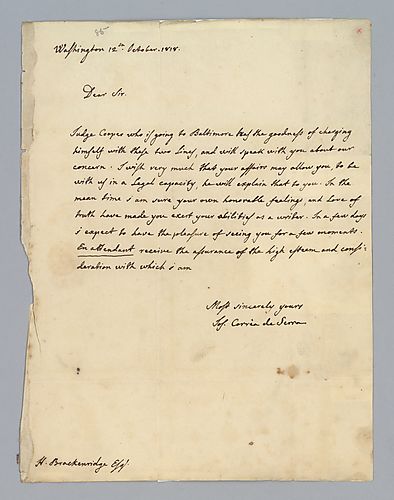 85
Washington 12th October. 1818.
Dear Sir.
Judge Cooper who is going to Baltimore has the goodness of charging
himself with these two lines, and will speak with you about our
concern. I wish very much that your affairs may allow you, to be
with us in a Legal capacity, he will explain that to you. In the
mean time I am sure your own honorable feelings, and love of
truth have made you exert your abilities as a writer. In a few days
I expect to have the pleasure of seeing you for a few moments.
En attendant receive the assurance of the high esteem and consi-
deration with which I am
Most sincerely yours
Jos. Corrèa de Serra
H. Brackenridge Esqr.